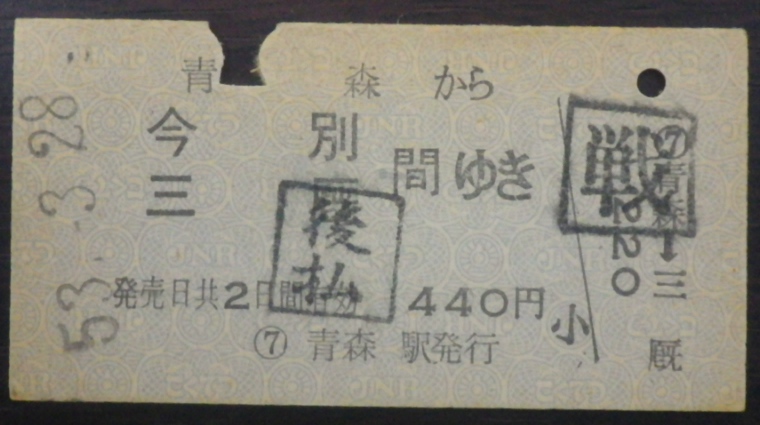 53.-3.28
青森から
今別
三
間ゆき
後払
発売日共2日間有効 440円
⑦ 青森 駅発行
小
戦
⑦青森→三厩
220